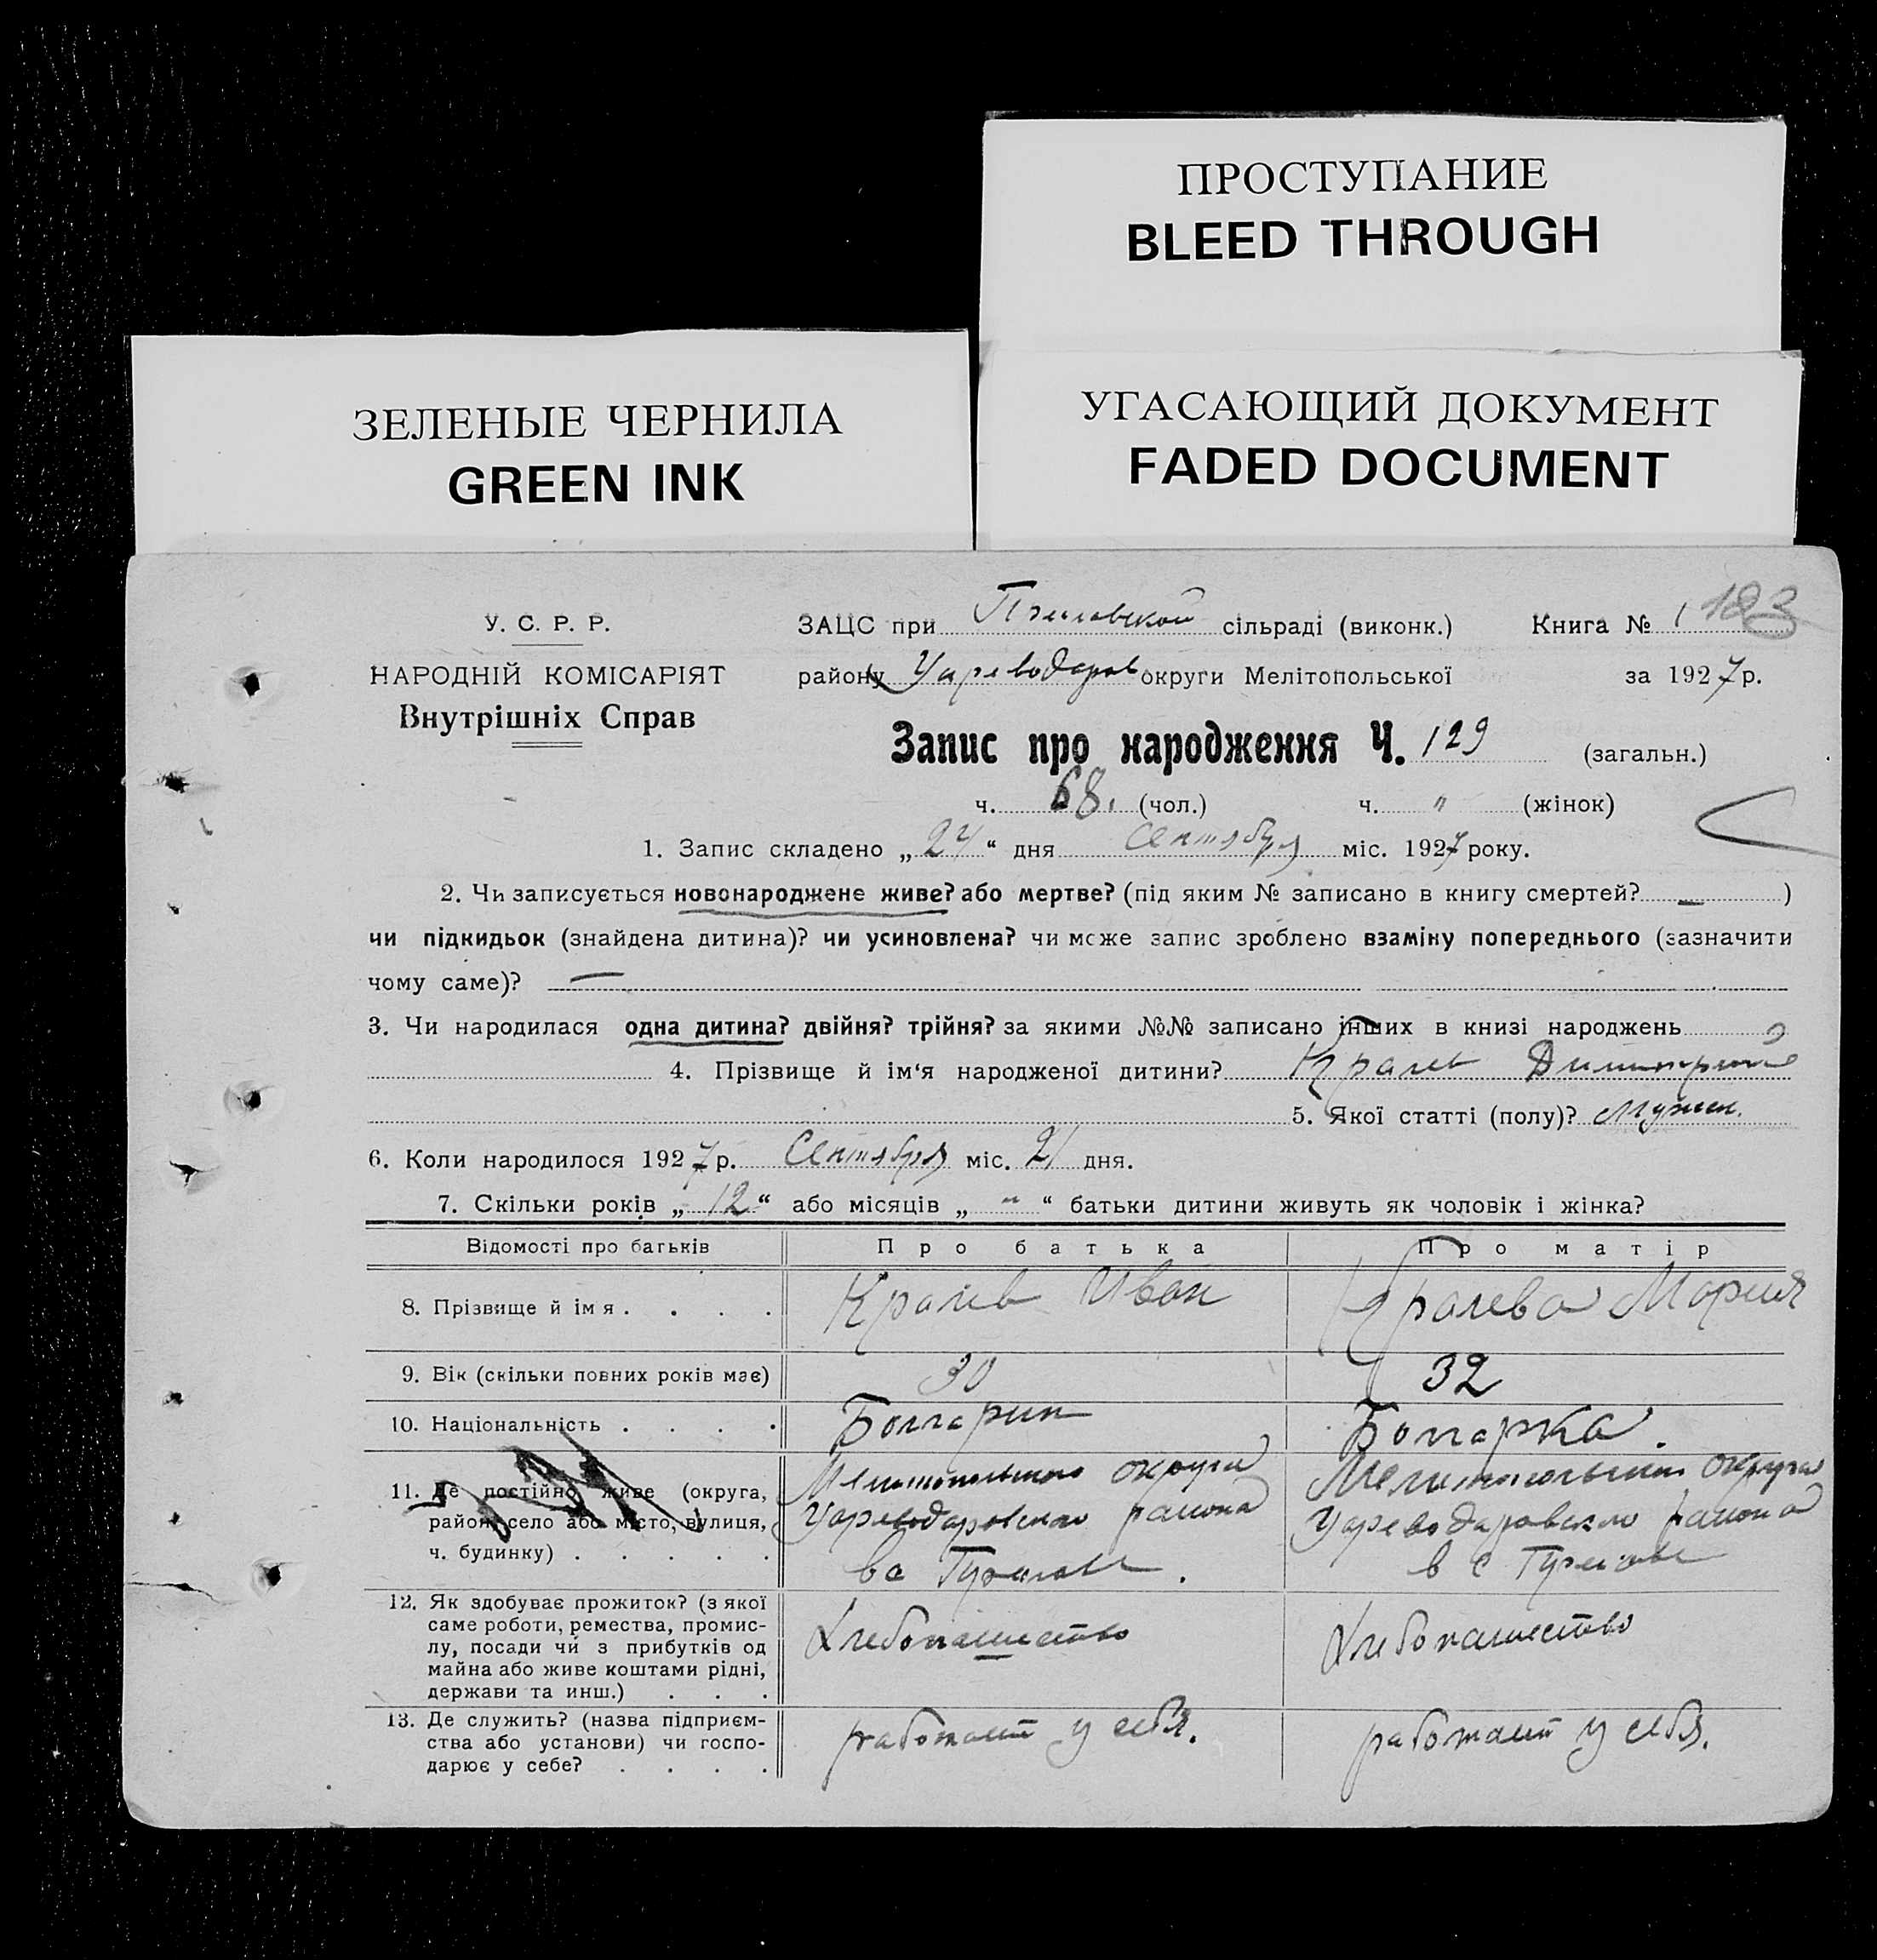 ПРОСТУПАНИЕ
BLEED THROUGH
ЗЕЛЕНЫЕ ЧЕРНИЛА
GREEN INK
УГАСАЮЩИЙ ДОКУМЕНТ
FADED DOCUMENT
У. С. Р. Р.
НАРОДНІЙ КОМІСАРІЯТ
Внутрішніх Справ
ЗАЦС при сільраді (виконк.) Книга № 1 123
району Цареводаров округи Мелітопольської за 1927 р.
Запис про народження Ч. 129 (загальн.)
ч. 68. (чол.) ч. " (жінок)
1. Запис складено „24“ дня Сентября міс. 1927 року.
2. Чи записується новонароджене живе? або мертве? (під яким № записано в книгу смертей? — )
чи підкидьок (знайдена дитина)? чи усиновлена? чи може запис зроблено взаміну попереднього (зазначити
чому саме)? —
3. Чи народилася одна дитина? двійня? трійня? за якими №№ записано інших в книзі народжень
4. Прізвище й ім‘я народженої дитини? Кралев Димитрий
5. Якої статті (полу)? Мужск.
6. Коли народилося 1927 р. Сентября міс. 21 дня.
7. Скільки років „12“ або місяців „ " “ батьки дитини живуть як чоловік і жінка?
Відомості про батьків Про батька Про матір
8. Прізвище й імя . . . . Кралев Иван Кралева Мария
9. Вік (скільки повних років має) 30 32
10. Національність . . . . Болгарин Болгарка.
11. Де постійно живе (округа,
район, село або місто, вулиця,
ч. будинку) . . . . .
Мелитопольского округа
Цареводаровского района
Мелитопольского округа
Цареводаровского района
в с
12. Як здобуває прожиток? (з якої
саме роботи, ремества, промис-
лу, посади чи з прибутків од
майна або живе коштами рідні,
держави та инш.) . . .
Хлебопашество Хлебопашество
13. Де служить? (назва підприєм-
ства або установи) чи госпо-
дарює у себе? . . . .
работает у себя. работает у себя.